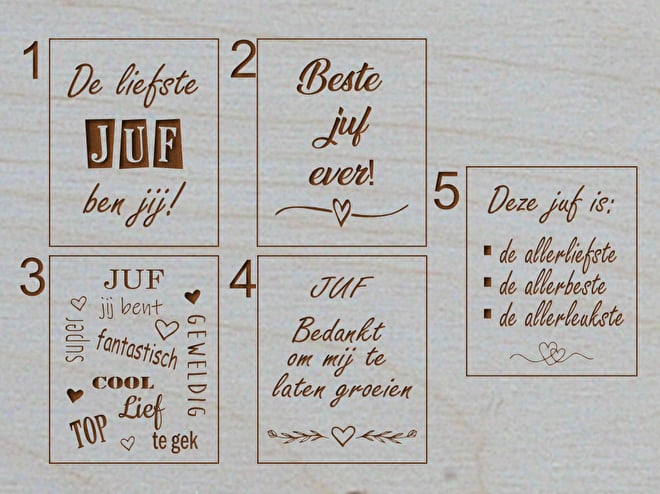 1
De liefste
JUF
ben jij!
2
Beste
juf
ever!
3
JUF
jij bent
super
fantastisch
GEWELDIG
COOL
Lief
TOP
te gek
4
JUF
Bedankt
om mij te
laten groeien
5
Deze juf is:
de allerliefste
de allerbeste
de allerleukste